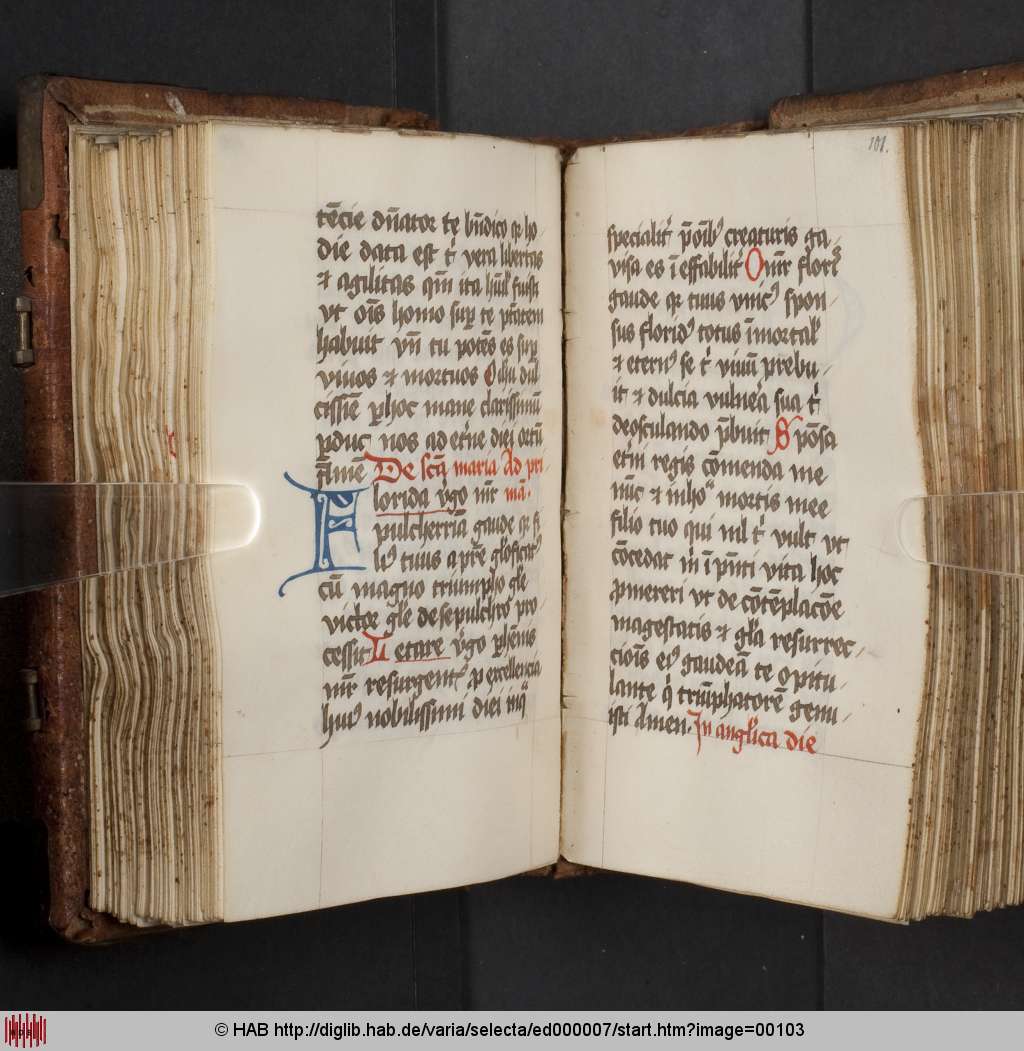 tēcie dn̄ator te bn̄dico qr ho
die data est t' vera libertas
& agilitas qm̄ ita hūl' fuisti
vt oīs homo sup te ptātem
habuit vn̄ tu potēs es sup
viuos & mortuos O ihu dul
cissīe p hoc mane clarissimū
pduc nos ad et'ne diei ortū
Amē De scā maria Ad pri
Florida v'go mr̄ mā.
pulcherrīa gaude qr fi
lius tuus a pr̄e gl'oficat'
cū magno triumpho gl'e
victor gl'e de sepulchro pro
cessit Letare v'go phēnis
mr̄ resurgent' p excellencia
hui' nobilissimi diei in q
101.
specialit' p oīb' creaturis ga
visa es īeffabilit' O mr̄ flori'
gaude qr tuus vnic' spon
sus florid' totus īmortal'
& etern' se t' viuū prebu
it & dulcia vulnera sua t'
deosculando p̄buit Sponsa
et'ni regis cōmenda me
nūc & in ho' mortis mee
filio tuo qui nil t' vult vt
cōcedat m' ī pn̄ti vita hoc
p̄mereri vt de cōtēplacōe
magestatis & gl'a resurrec
ciois ei' gaudeā te opitu
lante q' triūphatorē genu
isti Amen. In anglica die
© HAB http://diglib.hab.de/varia/selecta/ed000007/start.htm?image=00103